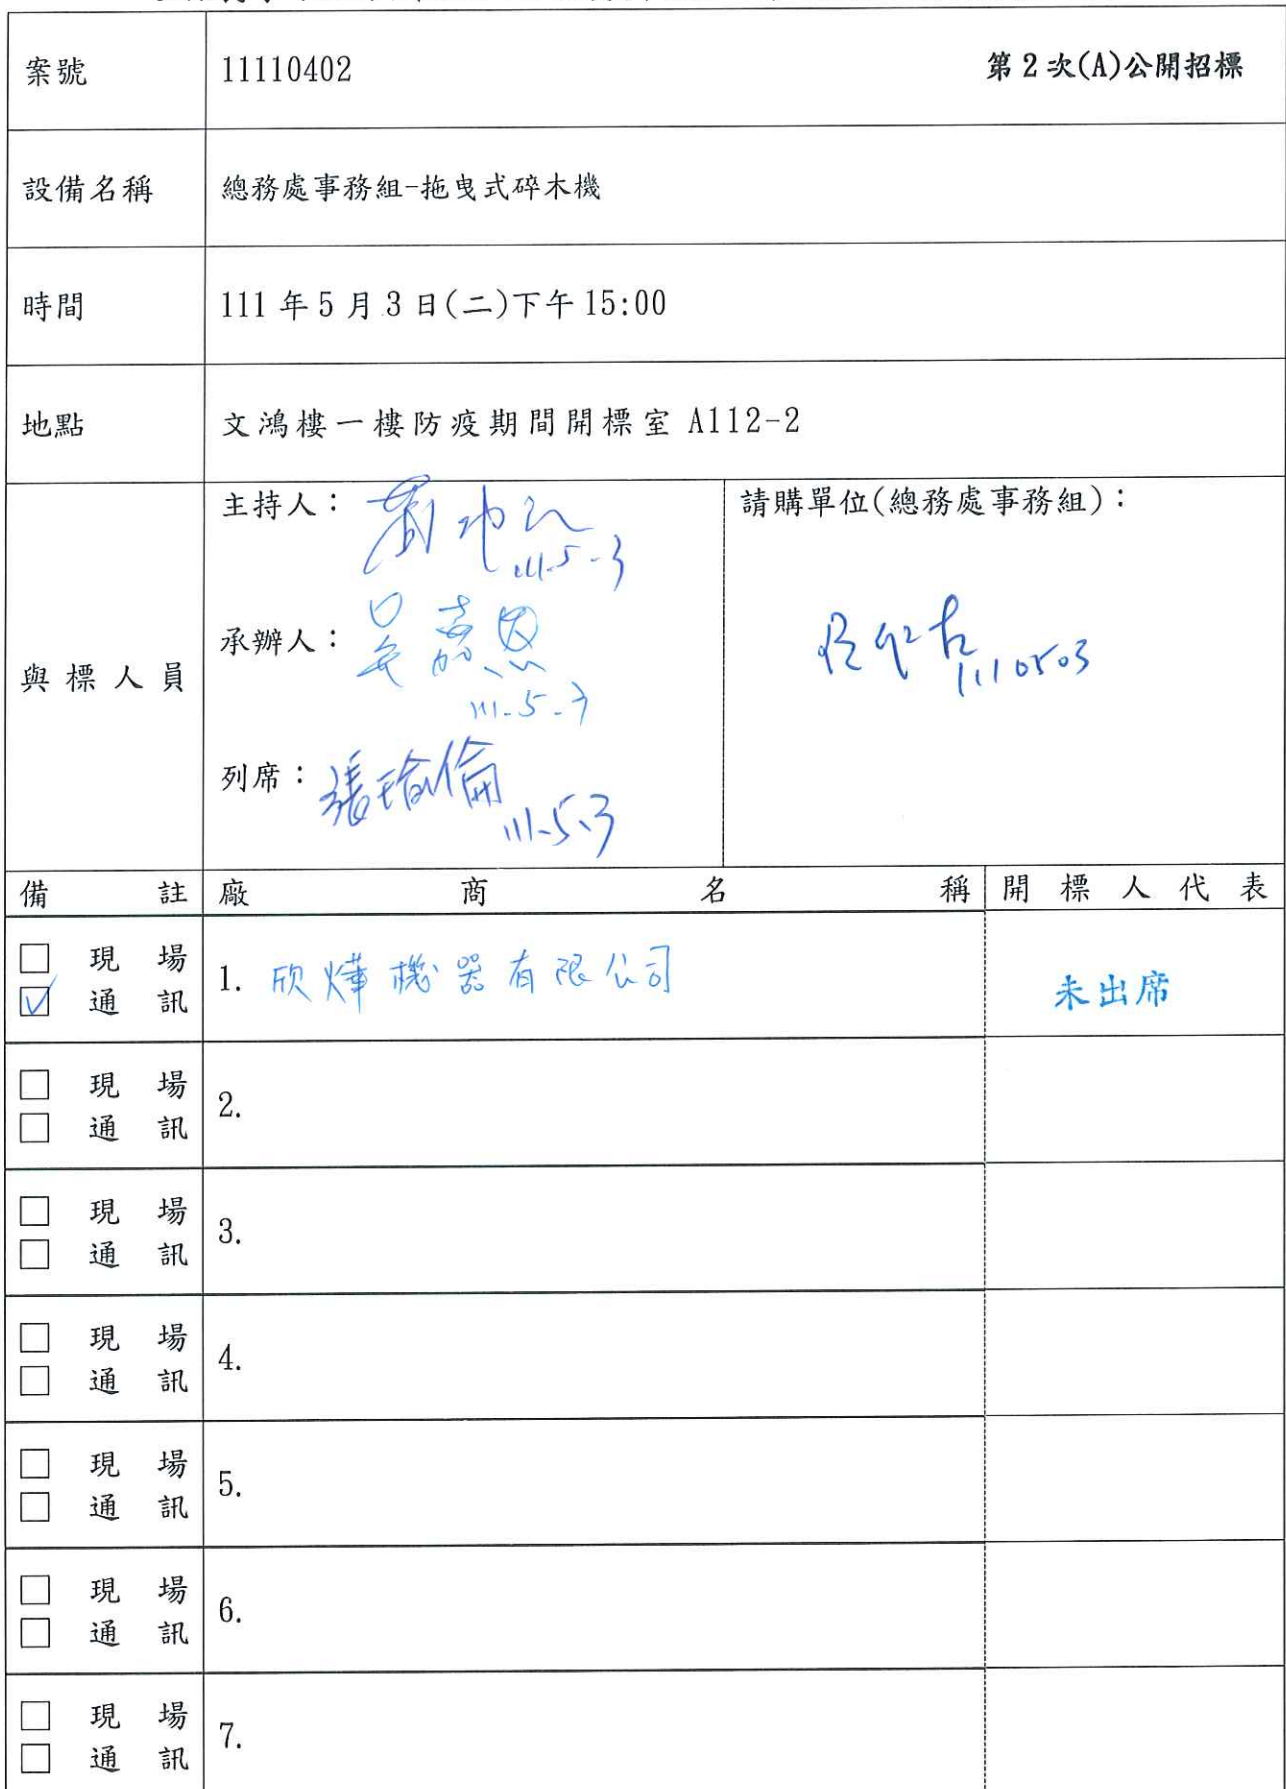 案號 11110402 第2次(A)公開招標
設備名稱 總務處事務組-拖曳式碎木機
時間 111年5月3日(二)下午15:00
地點 文鴻樓一樓防疫期間開標室 A112-2
與標人員
主持人：
111-5-3
承辦人：吳嘉恩
111-5-3
列席：張瑜倫
111-5-3
請購單位(總務處事務組)：
1110503
備註 廠商名稱 開標人代表
□ 現場
☑ 通訊
1. 欣燁機器有限公司
未出席
□ 現場
□ 通訊
2.
□ 現場
□ 通訊
3.
□ 現場
□ 通訊
4.
□ 現場
□ 通訊
5.
□ 現場
□ 通訊
6.
□ 現場
□ 通訊
7.